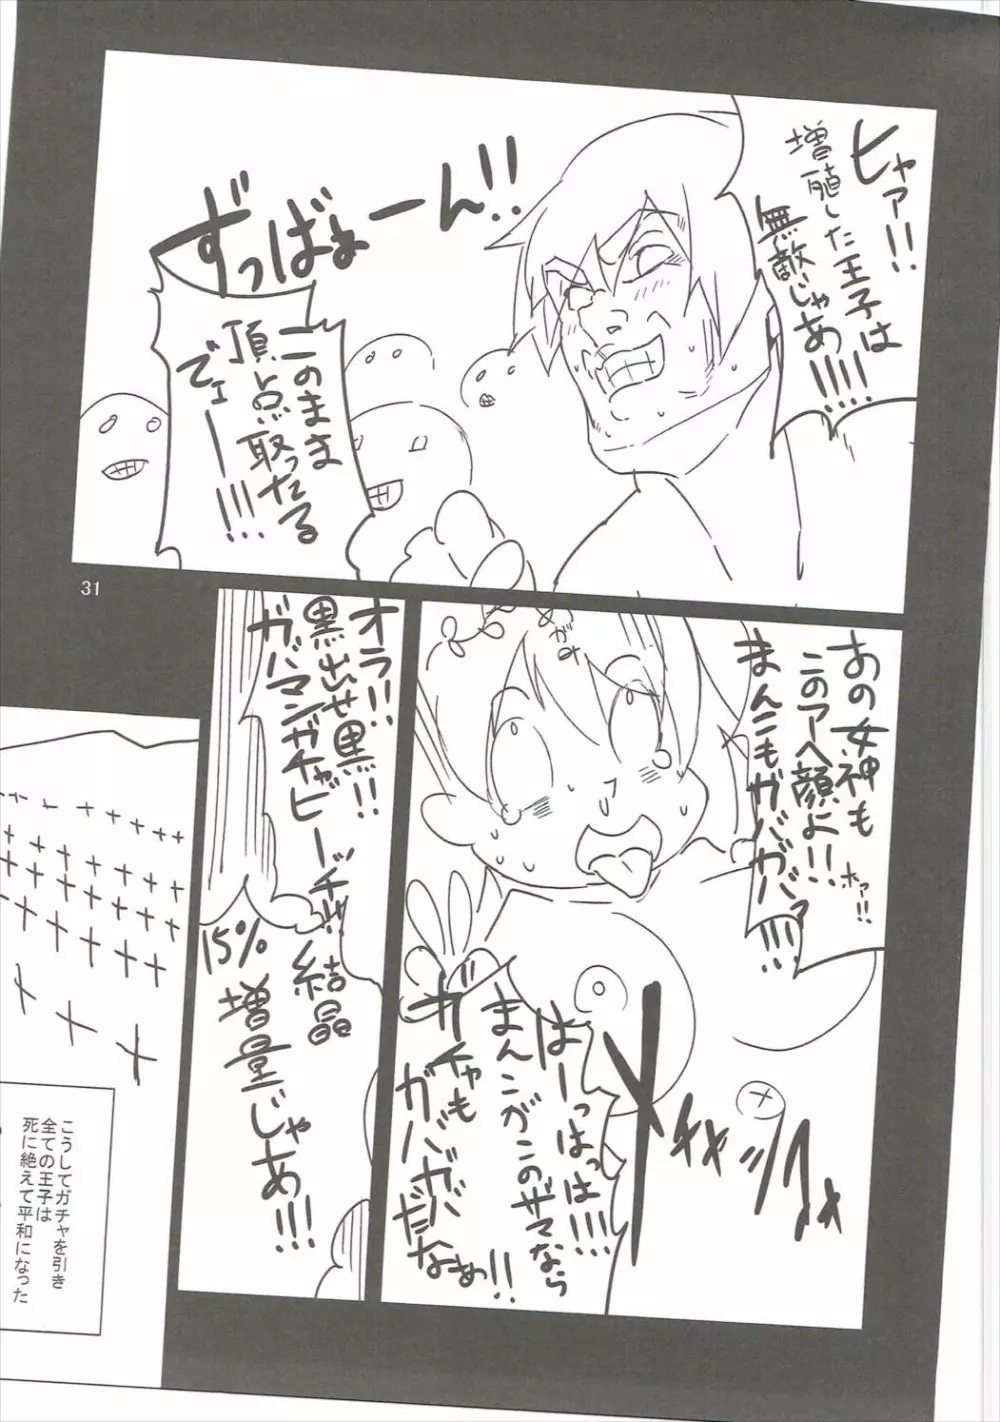 ヒャァァ!!
増殖した王子は
無敵じゃあ!!!!
ずっばぁーん!!
このまま
頂点取ったる
でェーー!!!
31
めがみ
あの女神も
このアヘ顔よ!!
まんこもガバガバァ!!!
ホァ!!
はーっはっは!!!!
まんこがこのザマなら
ガチャも
ガバガバ
だなぁ!!
オラ!!
黒出せ黒!!
ガバマンガチャビーッチ!!
結晶
15%
増量じゃあ!!!
こうしてガチャを引き
全ての王子は
死に絶えて平和になった